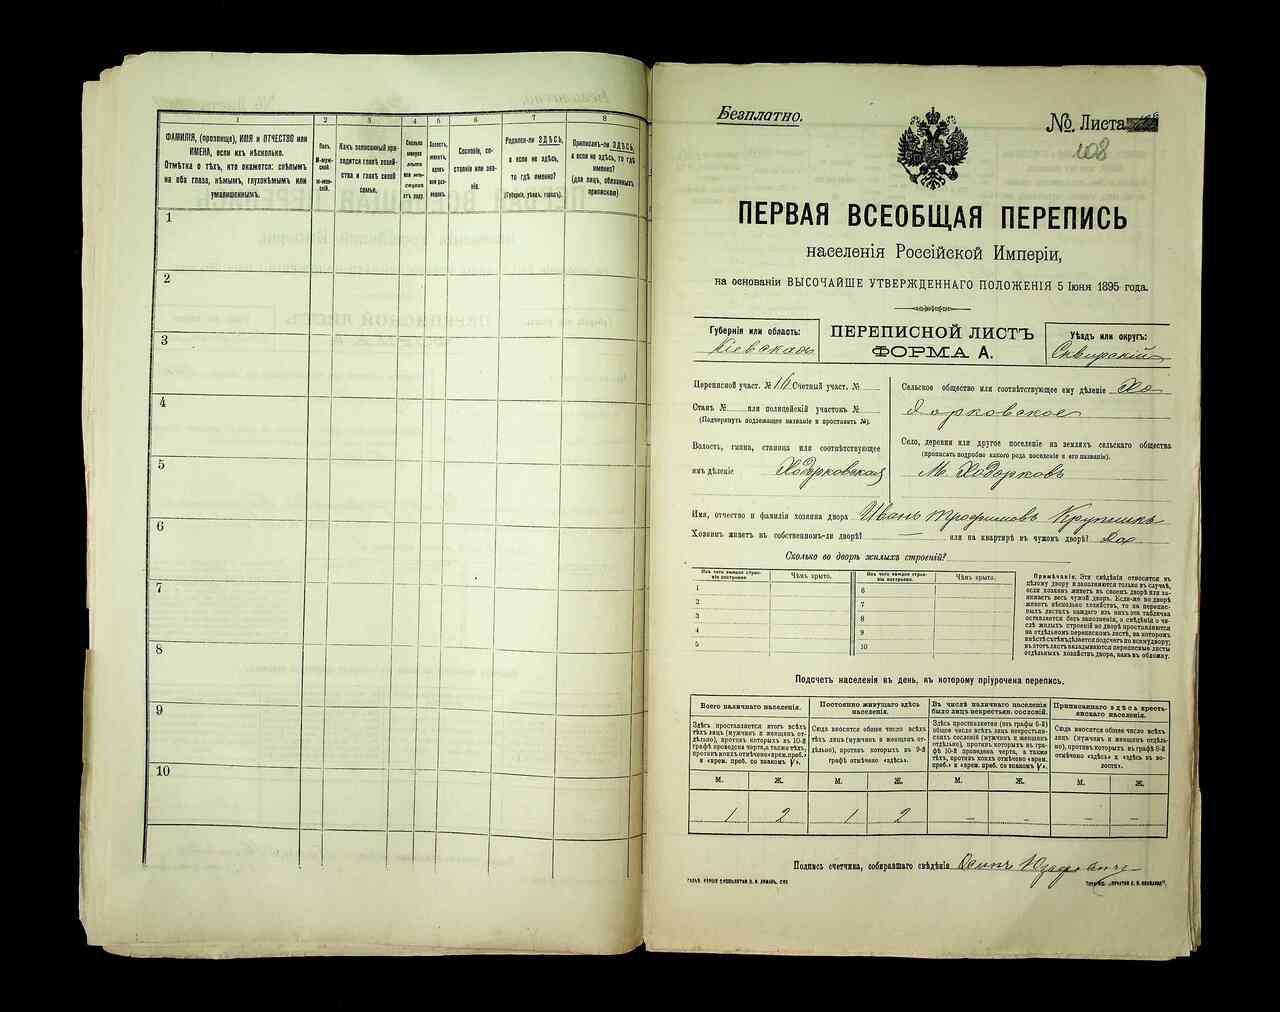 1 2 3 4 5 6 7 8
ФАМИЛІЯ, (прозвище), ИМЯ и ОТЧЕСТВО или
ИМЕНА, если ихъ нѣсколько.
Отмѣтка о тѣхъ, кто окажется: слѣпымъ
на оба глаза, нѣмымъ, глухонѣмымъ или
умалишеннымъ.
Полъ.
М-муж-
ской.
Ж-жен-
скій.
Какъ записанный при-
ходится главѣ хозяй-
ства и главѣ своей
семьи.
Сколько
минуло
лѣтъ
или мѣ-
сяцевъ
отъ роду.
Холостъ,
женатъ,
вдовъ
или раз-
веденъ.
Сословіе, со-
стояніе или зва-
ніе.
Родился-ли ЗДѢСЬ,
а если не здѣсь,
то гдѣ именно?
(Губернія, уѣздъ, городъ).
Приписанъ-ли ЗДѢСЬ,
а если не здѣсь, то гдѣ
именно?
(для лицъ, обязанныхъ
припискою)
1
2
3
4
5
6
7
8
9
10
Безплатно.
№ Листа
108
ПЕРВАЯ ВСЕОБЩАЯ ПЕРЕПИСЬ
населенія Россійской Имперіи,
на основаніи ВЫСОЧАЙШЕ УТВЕРЖДЕННАГО ПОЛОЖЕНІЯ 5 Іюня 1895 года.
Губернія или область:
Кіевская
ПЕРЕПИСНОЙ ЛИСТЪ
ФОРМА А.
Уѣздъ или округъ:
Сквирскій
Переписной участ. № 16 Счетный участ. №
Станъ № или полицейскій участокъ №
(Подчеркнуть подлежащее названіе и проставить №).
Волость, гмина, станица или соотвѣтствующее
имъ дѣленіе Ходорковская
Сельское общество или соотвѣтствующее ему дѣленіе Хо
дорковское
Село, деревня или другое поселеніе на земляхъ сельскаго общества
(прописать подробно какого рода поселеніе и его названіе).
М. Ходорковъ
Имя, отчество и фамилія хозяина двора Иванъ Трофимовъ Крупникъ
Хозяинъ живетъ въ собственномъ-ли дворѣ? — или на квартирѣ въ чужомъ дворѣ? Да
Сколько во дворѣ жилыхъ строеній?
Изъ чего каждое строе-
ніе построено.
Чѣмъ крыто.
Изъ чего каждое строе-
ніе построено.
Чѣмъ крыто.
1
2
3
4
5
6
7
8
9
10
Примѣчаніе. Эти свѣдѣнія относятся къ
цѣлому двору и заполняются только въ случаѣ,
если хозяинъ живетъ въ своемъ дворѣ или за-
нимаетъ весь чужой дворъ. Если-же во дворѣ
живетъ нѣсколько хозяйствъ, то на перепис-
ныхъ листахъ каждаго изъ нихъ эта табличка
оставляется безъ заполненія, а свѣдѣнія о чи-
слѣ жилыхъ строеній во дворѣ проставляются
на отдѣльномъ переписномъ листѣ, на которомъ
вмѣстѣ съ тѣмъ дѣлается подсчетъ по всему двору;
въ этотъ листъ вкладываются переписные листы
отдѣльныхъ хозяйствъ двора, какъ въ обложку.
Подсчетъ населенія въ день, къ которому пріурочена перепись.
Всего наличнаго населенія.
Здѣсь проставляется итогъ всѣхъ
тѣхъ лицъ (мужчинъ и женщинъ от-
дѣльно), противъ которыхъ въ 10-й
графѣ проведена черта, а также тѣхъ,
противъ коихъ отмѣчено «врем. преб.»
и «врем. преб. со знакомъ V».
Постоянно живущаго здѣсь
населенія.
Сюда вносятся общее число всѣхъ
тѣхъ лицъ (мужчинъ и женщинъ от-
дѣльно), противъ которыхъ въ 9-й
графѣ отмѣчено «здѣсь».
Въ числѣ наличнаго населенія
было лицъ некрестьян. сословій.
Здѣсь проставляется (изъ графы 6-й)
общее число всѣхъ лицъ некрестьян-
скихъ сословій (мужчинъ и женщинъ
отдѣльно), противъ которыхъ въ гра-
фѣ 10-й проведена черта, а также
тѣхъ, противъ коихъ отмѣчено «врем.
преб.» и «врем. преб. со знакомъ V».
Приписаннаго здѣсь кресть-
янскаго населенія.
Сюда вносятся общее число всѣхъ
тѣхъ лицъ (мужчинъ и женщинъ отдѣль-
но), противъ которыхъ въ графѣ 8-й
отмѣчено «здѣсь» и «здѣсь въ во-
лости».
М. Ж. М. Ж. М. Ж. М. Ж.
1 2 1 2 — — — —
Подпись счетчика, собиравшаго свѣдѣнія Осипъ